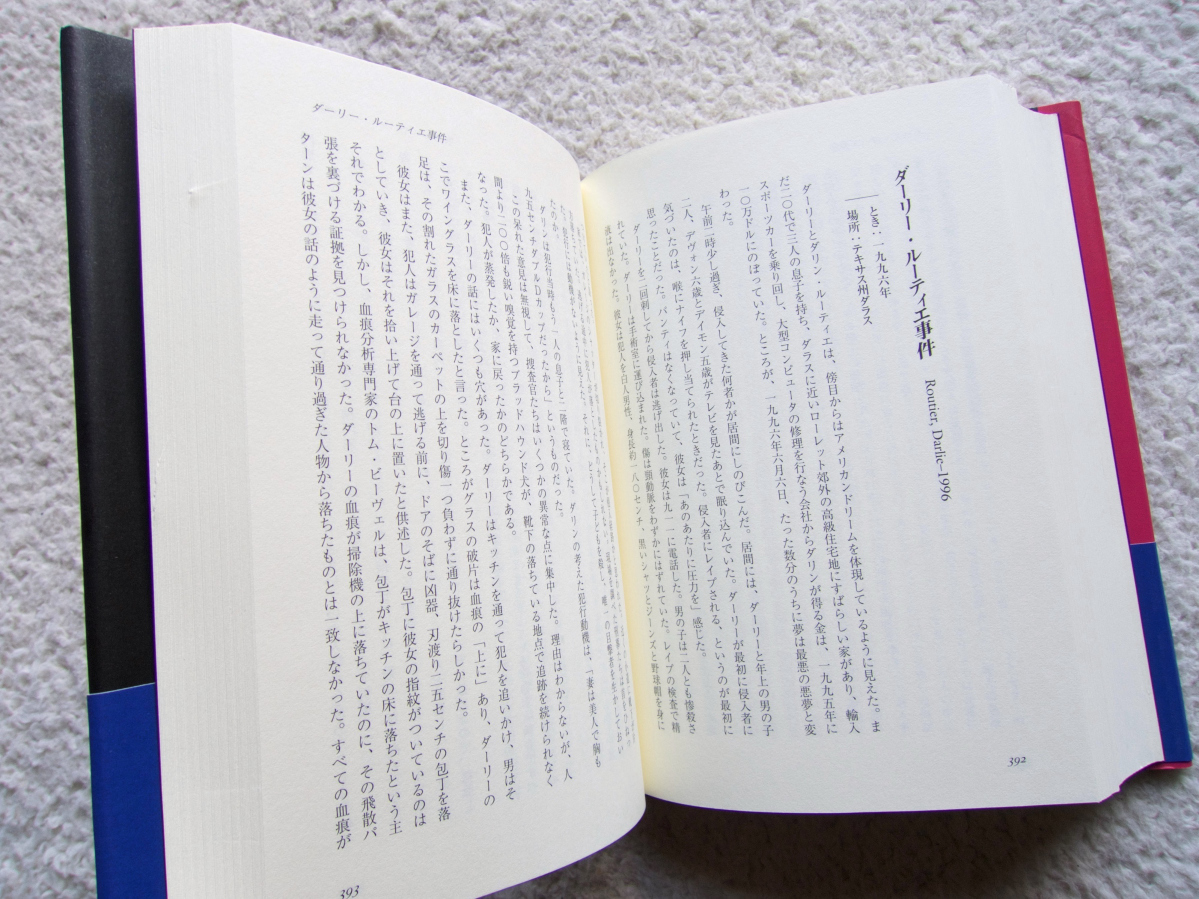 ダーリー・ルーティエ事件 Routier, Darlie–1996
とき：一九九六年
場所：テキサス州ダラス
ダーリーとダリン・ルーティエは、傍目からはアメリカンドリームを体現しているように見えた。ま
だ二〇代で三人の息子を持ち、ダラスに近いローレット郊外の高級住宅地にすばらしい家があり、輸入
スポーツカーを乗り回し、大型コンピュータの修理を行なう会社からダリンが得る金は、一九九五年に
一〇万ドルにのぼっていた。ところが、一九九六年六月六日、たった数分のうちに夢は最悪の悪夢と変
わった。
午前二時少し過ぎ、侵入してきた何者かが居間にしのびこんだ。居間には、ダーリーと年上の男の子
二人、デヴォン六歳とデイモン五歳がテレビを見たあとで眠り込んでいた。ダーリーが最初に侵入者に
気づいたのは、喉にナイフを押し当てられたときだった。侵入者にレイプされる、というのが最初に
思ったことだった。パンティはなくなっていて、彼女は「あのあたりに圧力を」感じた。
ダーリーを二回刺してから侵入者は逃げ出した。彼女は九一一に電話した。男の子は二人とも惨殺さ
れていた。ダーリーは手術室に運び込まれた。傷は頸動脈をわずかにはずれていた。レイプの検査で精
液は出なかった。彼女は犯人を白人男性、身長約一八〇センチ、黒いシャツとジーンズと野球帽を身に
392
ダーリー・ルーティエ事件
ダリンは犯行当時もう一人の息子と二階で寝ていた。ダリンの考えた犯行動機は、「妻は美人で胸も
九五センチダブルDカップだったから」というものだった。
この呆れた意見は無視して、捜査官たちはいくつかの異常な点に集中した。理由はわからないが、人
間より二〇〇倍も鋭い嗅覚を持つブラッドハウンド犬が、靴下の落ちている地点で追跡を続けられなく
なった。犯人が蒸発したか、家に戻ったかのどちらかである。
また、ダーリーの話にはいくつも穴があった。ダーリーはキッチンを通って犯人を追いかけ、男はそ
こでワイングラスを床に落としたと言った。ところがグラスの破片は血痕の「上に」あり、ダーリーの
足は、その割れたガラスのカーペットの上を切り傷一つ負わずに通り抜けたらしかった。
彼女はまた、犯人はガレージを通って逃げる前に、ドアのそばに凶器、刃渡り二五センチの包丁を落
としていき、彼女はそれを拾い上げて台の上に置いたと供述した。包丁に彼女の指紋がついているのは
それでわかる。しかし、血痕分析専門家のトム・ビーヴェルは、包丁がキッチンの床に落ちたという主
張を裏づける証拠を見つけられなかった。ダーリーの血痕が掃除機の上に落ちていたのに、その飛散パ
ターンは彼女の話のように走って通り過ぎた人物から落ちたものとは一致しなかった。すべての血痕が
393